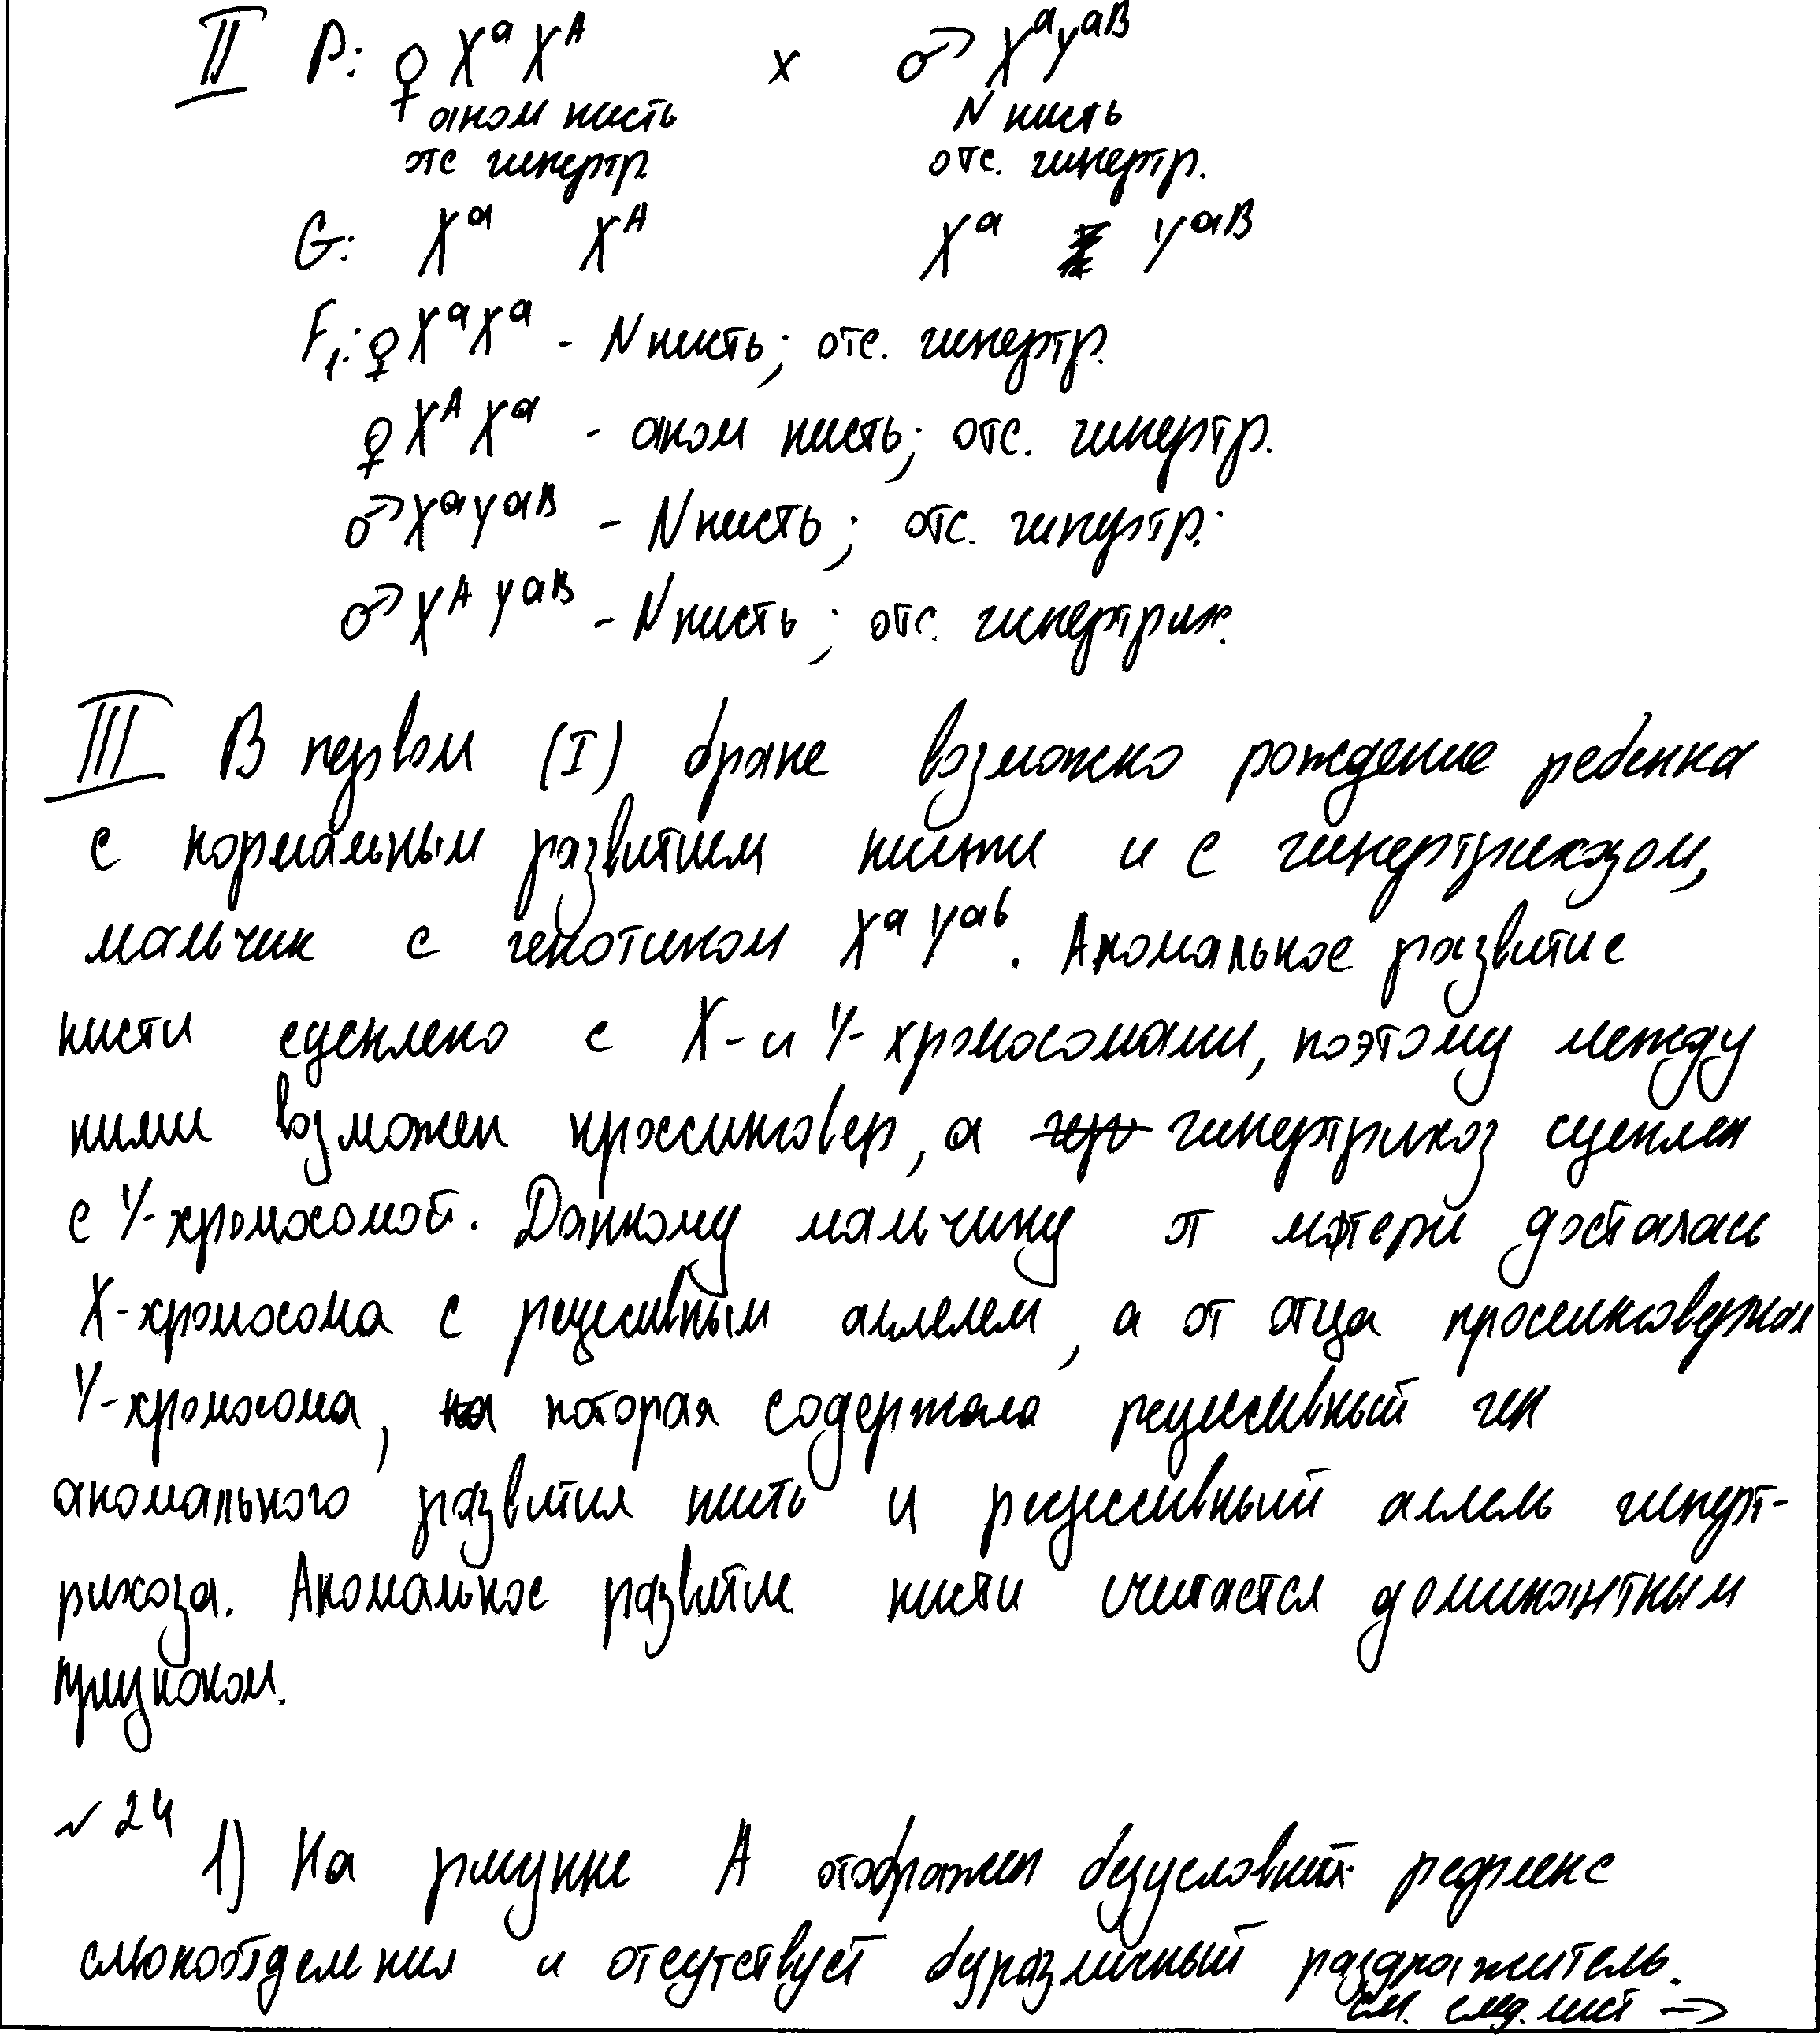 II P: ♀ XᵃXᴬ x ♂ XᵃYᵃᴮ
аном кисть N кисть
отс гипертр. отс. гипертр.
G: Xᵃ Xᴬ Xᵃ Yᵃᴮ
F₁: ♀ XᵃXᵃ - N кисть; отс. гипертр.
♀ XᴬXᵃ - аном кисть; отс. гипертр.
♂ XᵃYᵃᴮ - N кисть; отс. гипертр.
♂ XᴬYᵃᴮ - N кисть; отс. гипертрих.
III В первом (I) браке возможно рождение ребенка
с нормальным развитием кисти и с гипертрихозом,
мальчик с генотипом XᵃYᵃᵇ. Аномальное развитие
кисти сцеплено с X- и Y-хромосомами, поэтому между
ними возможен кроссинговер, а гипертрихоз сцеплен
с Y-хромосомой. Данному мальчику от матери досталась
X-хромосома с рецессивным аллелем, а от отца кроссинговерная
Y-хромосома, которая содержала рецессивный ген
аномального развития кисть и рецессивный аллель гиперт-
рихоза. Аномальное развитие кисти считается доминантным
признаком.
№24
1) На рисунке А отображен безусловный рефлекс
слюноотделения и отсутствует безразличный раздражитель.
см. след. лист →